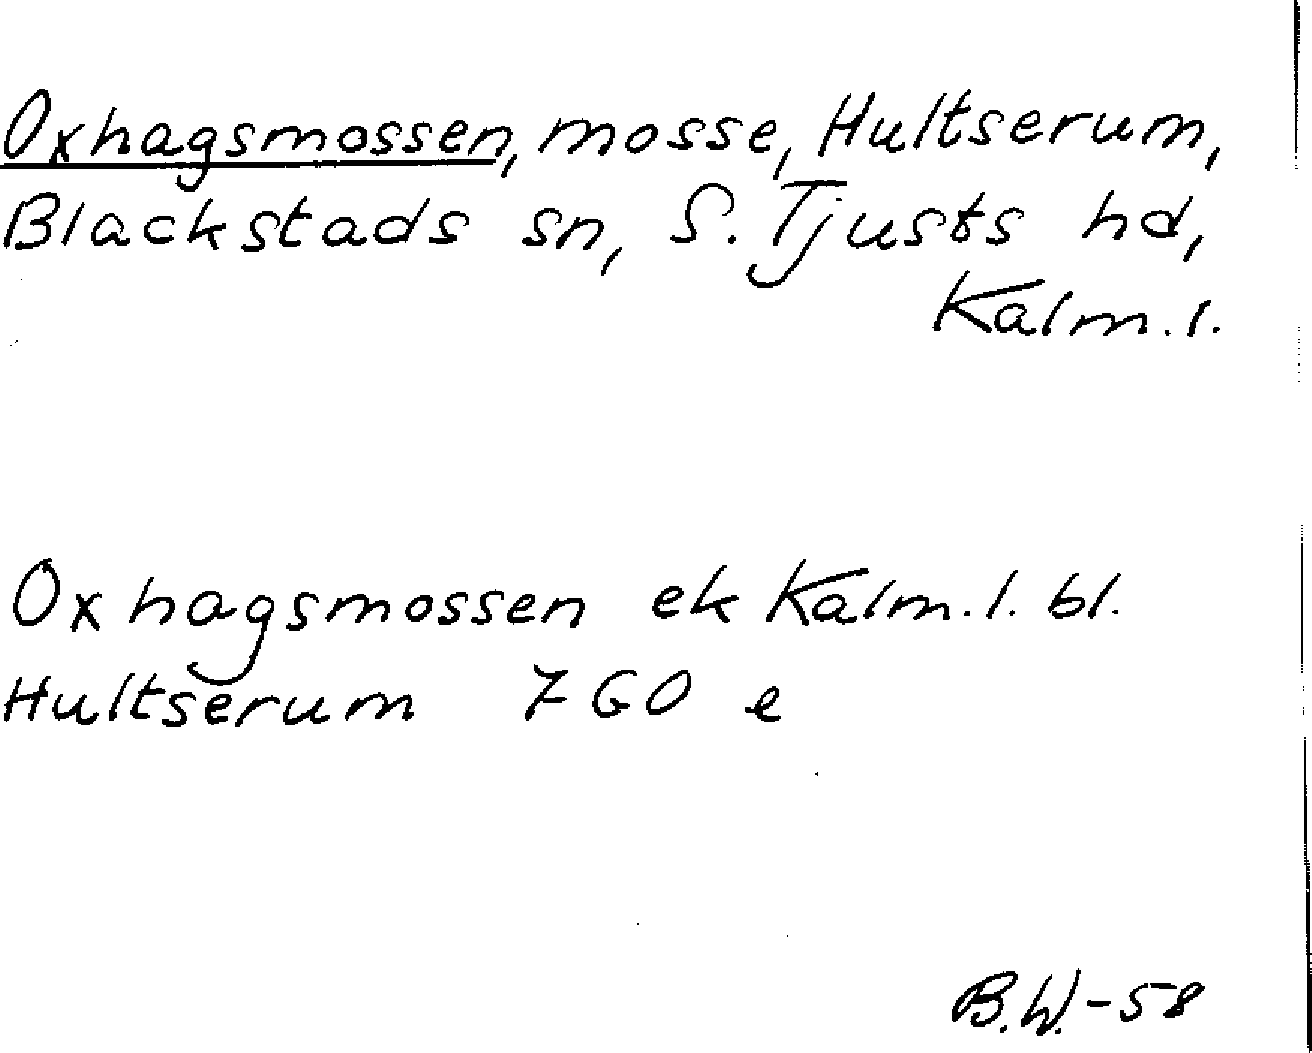 Oxhagsmossen, mosse, Hultserum,
Blackstads sn, S. Tjusts hd,
Kalm. l.
Oxhagsmossen ek Kalm. l. bl.
Hultserum 7 G0 e
B.W.-58